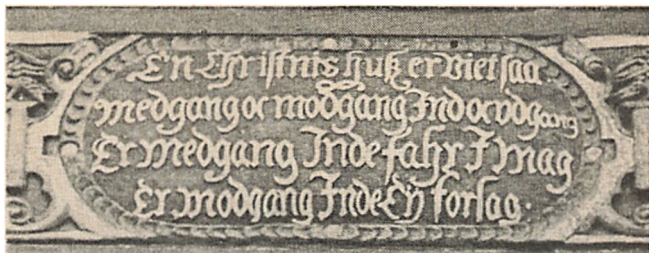 En Christnis huß er Viet saa
Medgang oc modgang Ind oc vdgang
Er Medgang Inde fahr I Mag
Er Modgang Inde Ey forsag.